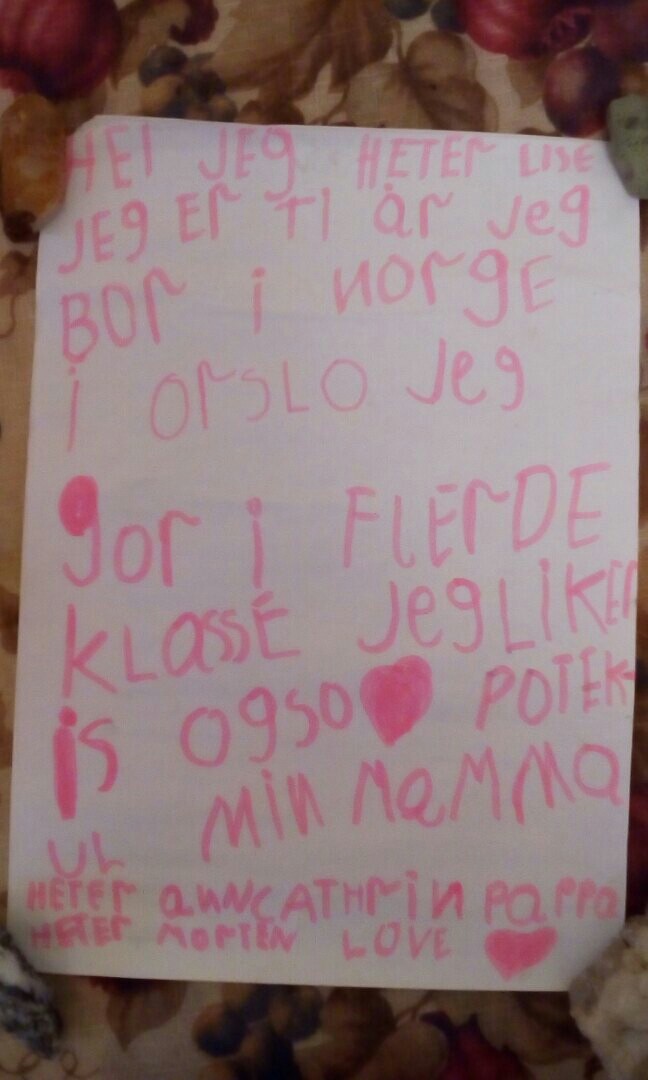 HEI JEg HETEr LISE
JEg Er TI år Jeg
BOr i NOrgE
i OrSLO Jeg
gor i FlErDE
KLasse JegLiKEr
is ogso POTEK-
UL MiN MaMMa
HETEr aNNCATHriN PaPPa
HETEr MOrTEN LOVE